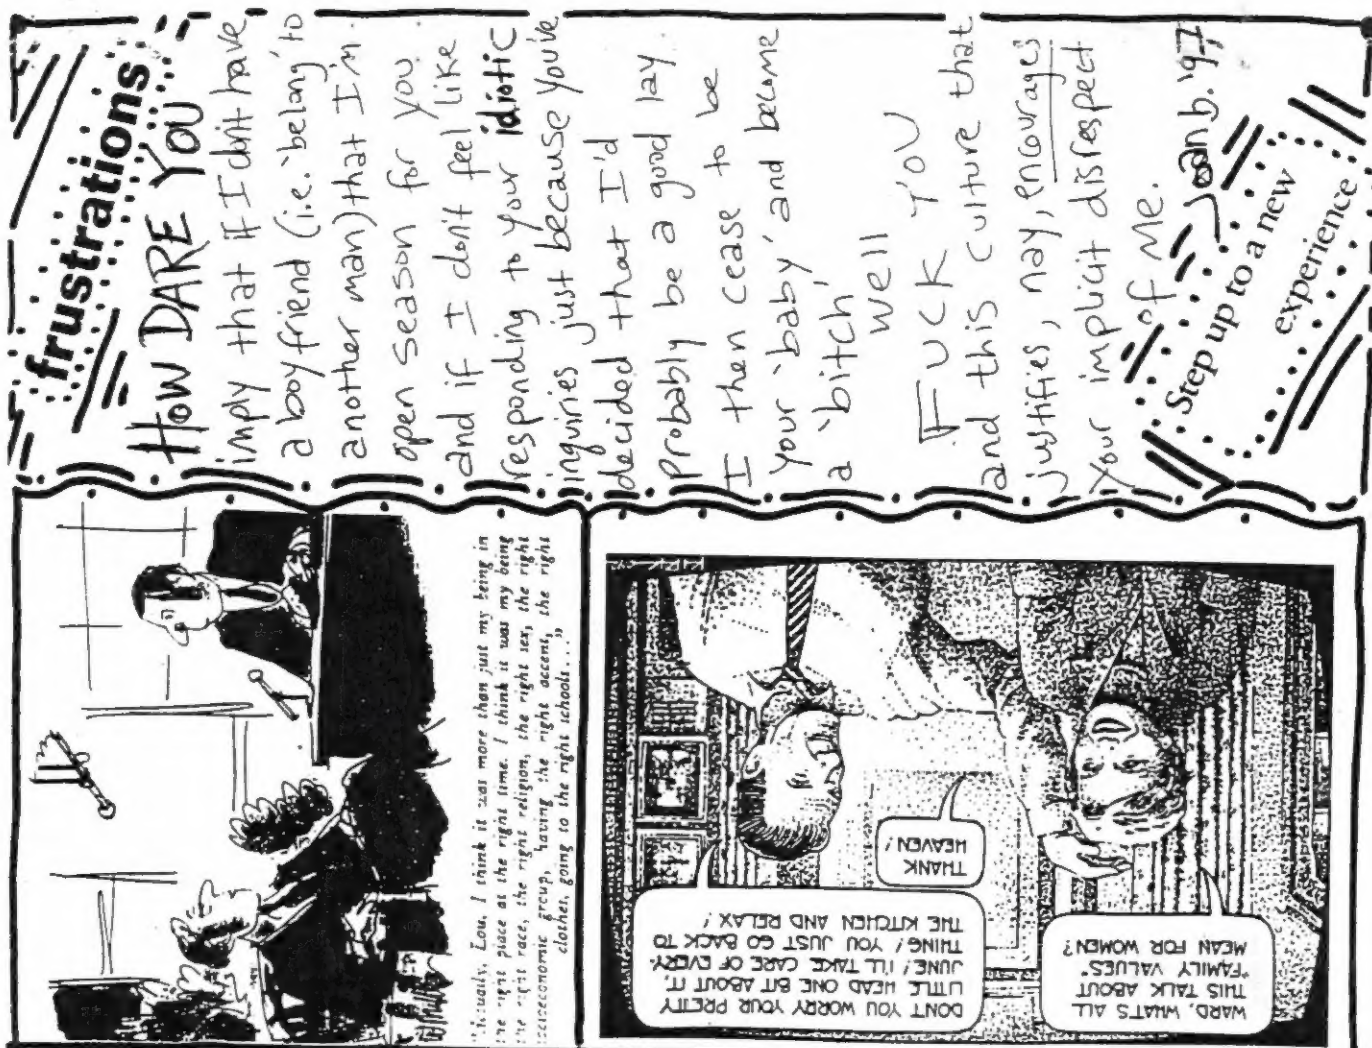 frustrations
HOW DARE YOU
imply that if I don't have
a boyfriend (i.e. 'belong' to
another man) that I'm
open season for you
and if I don't feel like
responding to your idiotic
inquiries just because you've
decided that I'd
probably be a good lay
I then cease to be
your 'baby' and become
a 'bitch'
well
FUCK YOU
and this culture that
justifies, nay, encourages
your implicit disrespect
of me.
Joan b. '97
Step up to a new
experience
"Actually, Lou, I think it was more than just my being in
the right place at the right time. I think it was my being
the right race, the right religion, the right sex, the right
socioeconomic group, having the right accent, the right
clothes, going to the right schools..."
WARD, WHAT'S ALL
THIS TALK ABOUT
"FAMILY VALUES"
MEAN FOR WOMEN?
DON'T YOU WORRY YOUR PRETTY
LITTLE HEAD ONE BIT ABOUT IT,
JUNE! I'LL TAKE CARE OF EVERY-
THING! YOU JUST GO BACK TO
THE KITCHEN AND RELAX!
THANK
HEAVEN!
KIRK